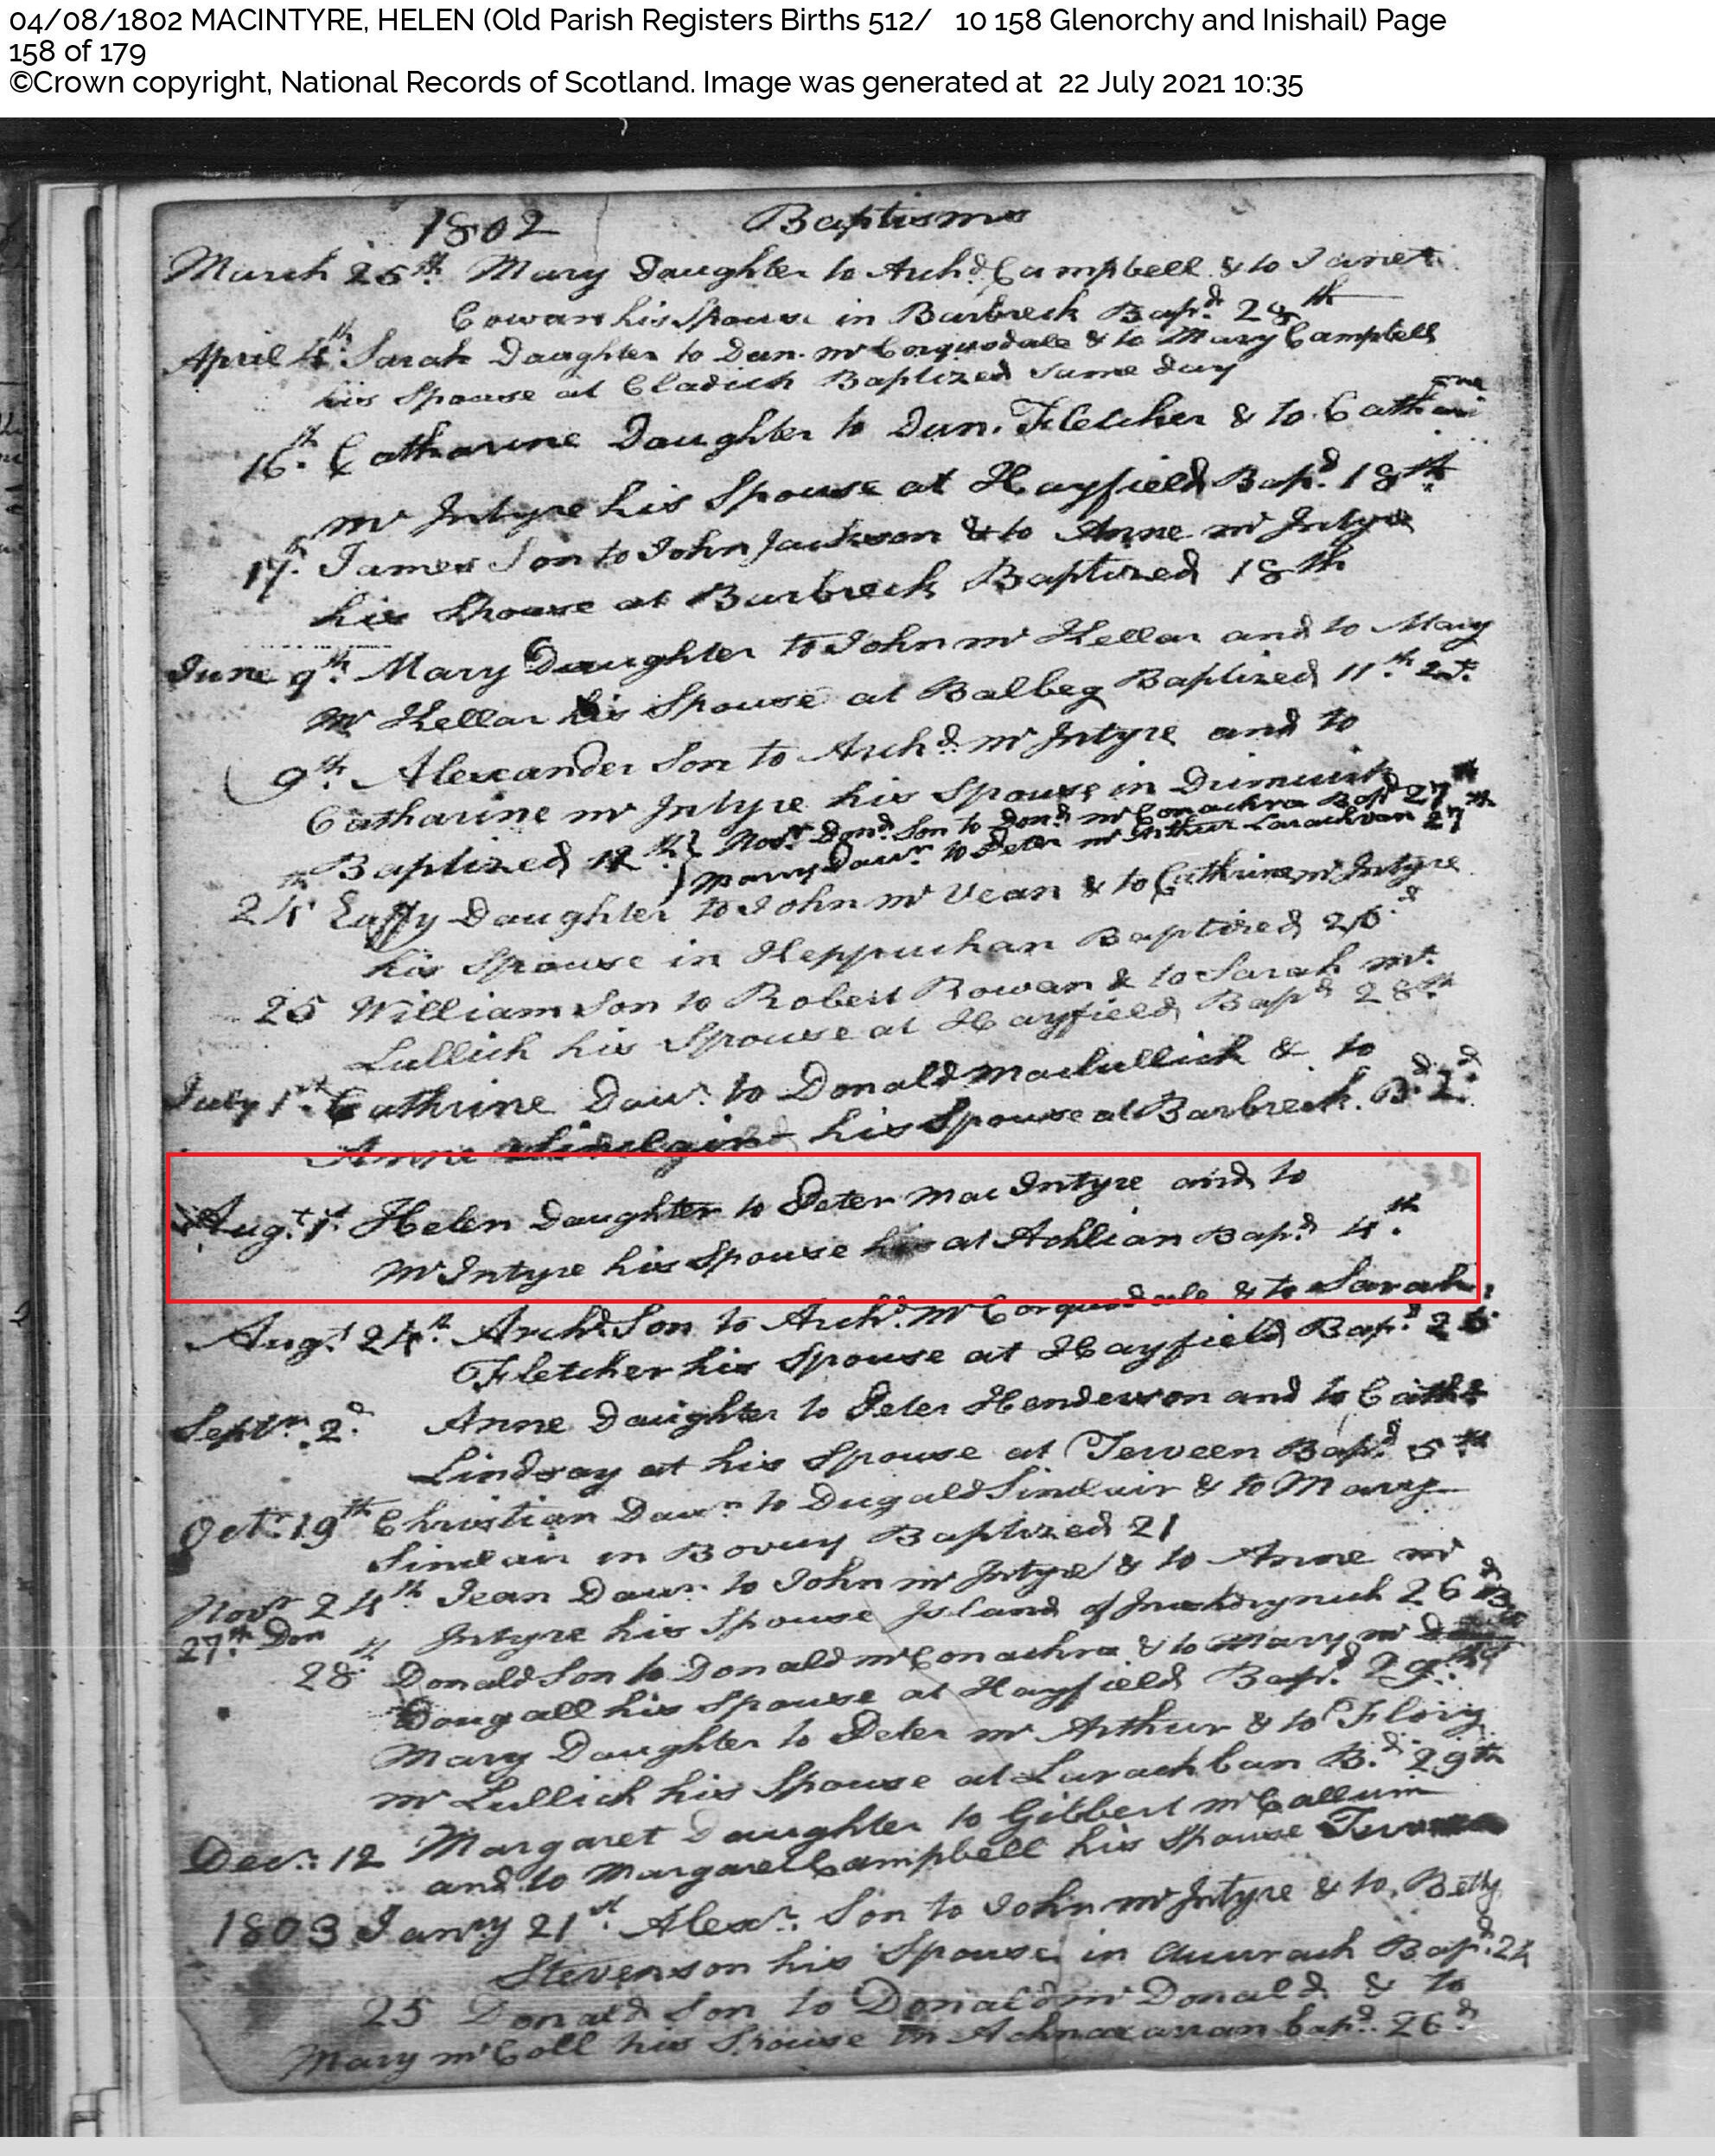 04/08/1802 MACINTYRE, HELEN (Old Parish Registers Births 512/ 10 158 Glenorchy and Inishail) Page
158 of 179
©Crown copyright, National Records of Scotland. Image was generated at 22 July 2021 10:35
1802 Baptisms
March 25th. Mary Daughter to Archd. Campbell & to Janet
Cowan his Spouse in Barbreck Bapd. 28th
April 4th. Sarah Daughter to Dun. mcCorquodale & to Mary Campbell
his Spouse at Cladich Baptized same day
16th. Catharine Daughter to Dun. Fletcher & to
mc Intyre his Spouse at Hayfield Bapd. 18th
17th. James Son to John Jackson & to Anne mc Intyre
his Spouse at Barbreck Baptized 18th
June 9th. Mary Daughter to John mc Kellar and to Mary
Mc Kellar his Spouse at Balbeg Baptized 11th
9th. Alexander Son to Archd. mc Intyre and to
Catharine mc Intyre his Spouse in
Baptized 12th Novr. Dond. Son to Dond. mcConachra Bapd 27th
Mary Daur. to Peter mc Arthur Larachban 27th
24th Euffy Daughter to John mc Vean & to Cathrine mc Intyre
his Spouse in Keppuchan Baptized
25 William Son to Robert Rowan & to Sarah mc.
Lullich his Spouse at Hayfield Bapd 28th
July 1st. Cathrine Daur. to Donald Maclullich & to
Anne his Spouse at Barbreck. Bd. 2d.
Augt. 1st. Helen Daughter to Peter MacIntyre and to
McIntyre his Spouse at Achlian Bapd. 4th.
Augt. 24th. Archd. Son to Archd. McCorquodale & to Sarah
Fletcher his Spouse at Hayfield Bapd. 26
Septr. 2d. Anne Daughter to Peter Henderson and to
Lindsay at his Spouse at Terveen Bapd. 5th
Octr. 19th Christian Daur. to Dugald Sinclair & to Mary
Sinclair in Bovuy Baptized 21
Novr 24th Jean Daur. to John mc Intyre & to Anne mc
27th Don Intyre his Spouse Island of 26
28th Donald Son to Donald mcConachra & to Mary mc
Dougall his Spouse at Hayfield Bapd. 29th
Mary Daughter to Peter mc Arthur & to Flory
mc Lullich his Spouse at Larachban Bd. 29th
Decr. 12 Margaret Daughter to Gilbert mcCallum
and to Margaret Campbell his Spouse
1803 Janry 21st. Alexr. Son to John mc Intyre & to Betty
Stevenson his Spouse in Bapd. 24
25 Donald Son to Donald mc Donald & to
Mary mcColl his Spouse in bapd. 26d